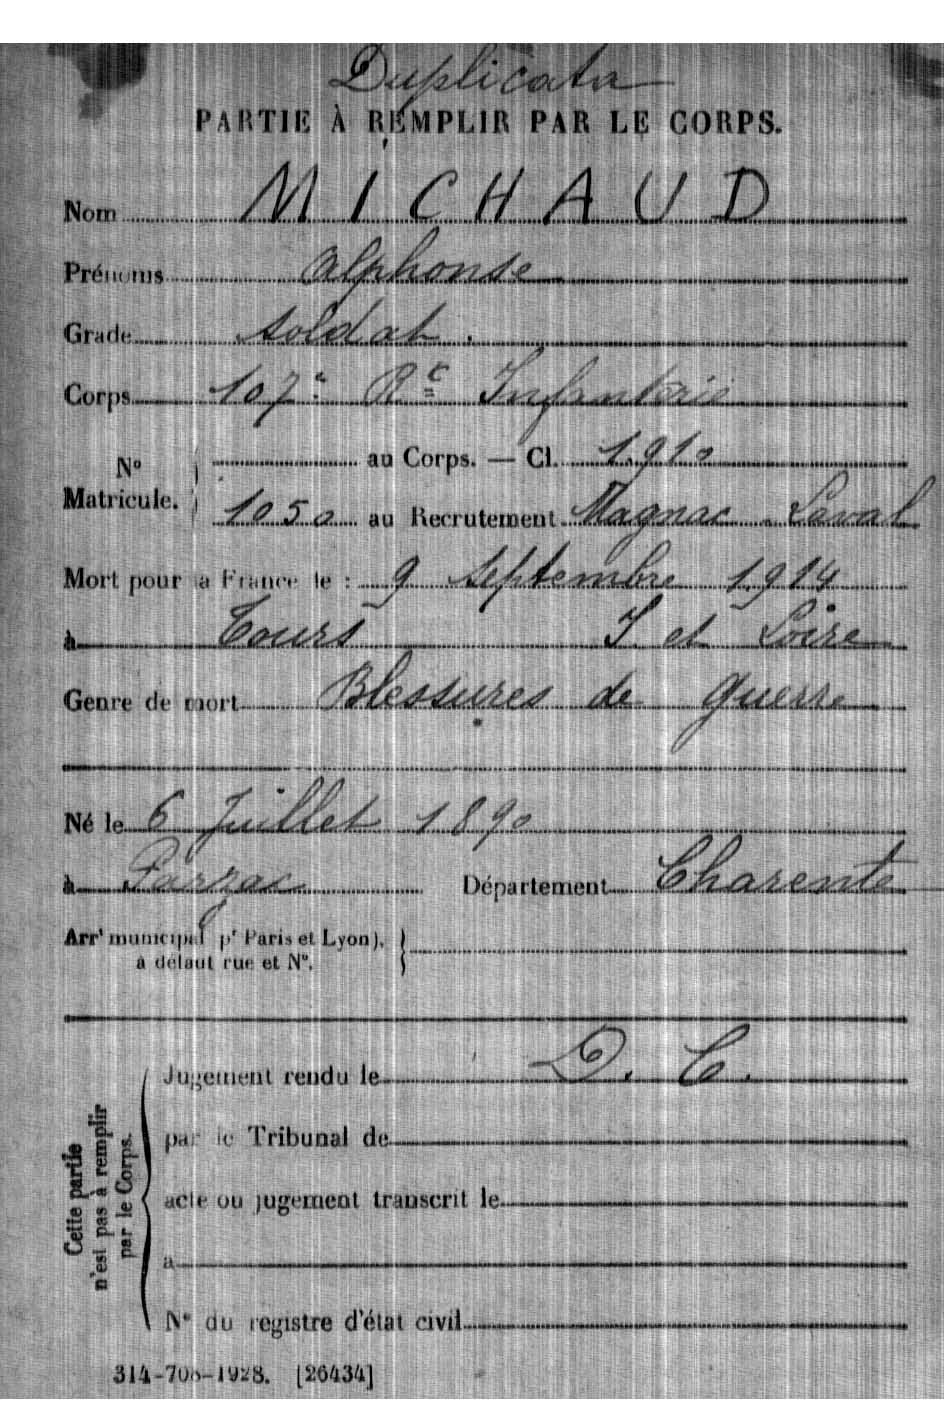 Duplicata
PARTIE À REMPLIR PAR LE CORPS.
Nom MICHAUD
Prénoms Alphonse
Grade Soldat.
Corps 107e Rt Infanterie
No Matricule. { au Corps. — Cl. 1910
1050 au Recrutement Magnac-Laval
Mort pour la France le : 9 Septembre 1914
à Tours I. et Loire
Genre de mort Blessures de Guerre
Né le 6 Juillet 1890
à Parzac Département Charente
Arrt municipal (pr Paris et Lyon),
à défaut rue et No.
Cette partie n'est pas à remplir par le Corps.
Jugement rendu le D. C.
par le Tribunal de
acte ou jugement transcrit le
à
No du registre d'état civil
314-708-1928. [26434]